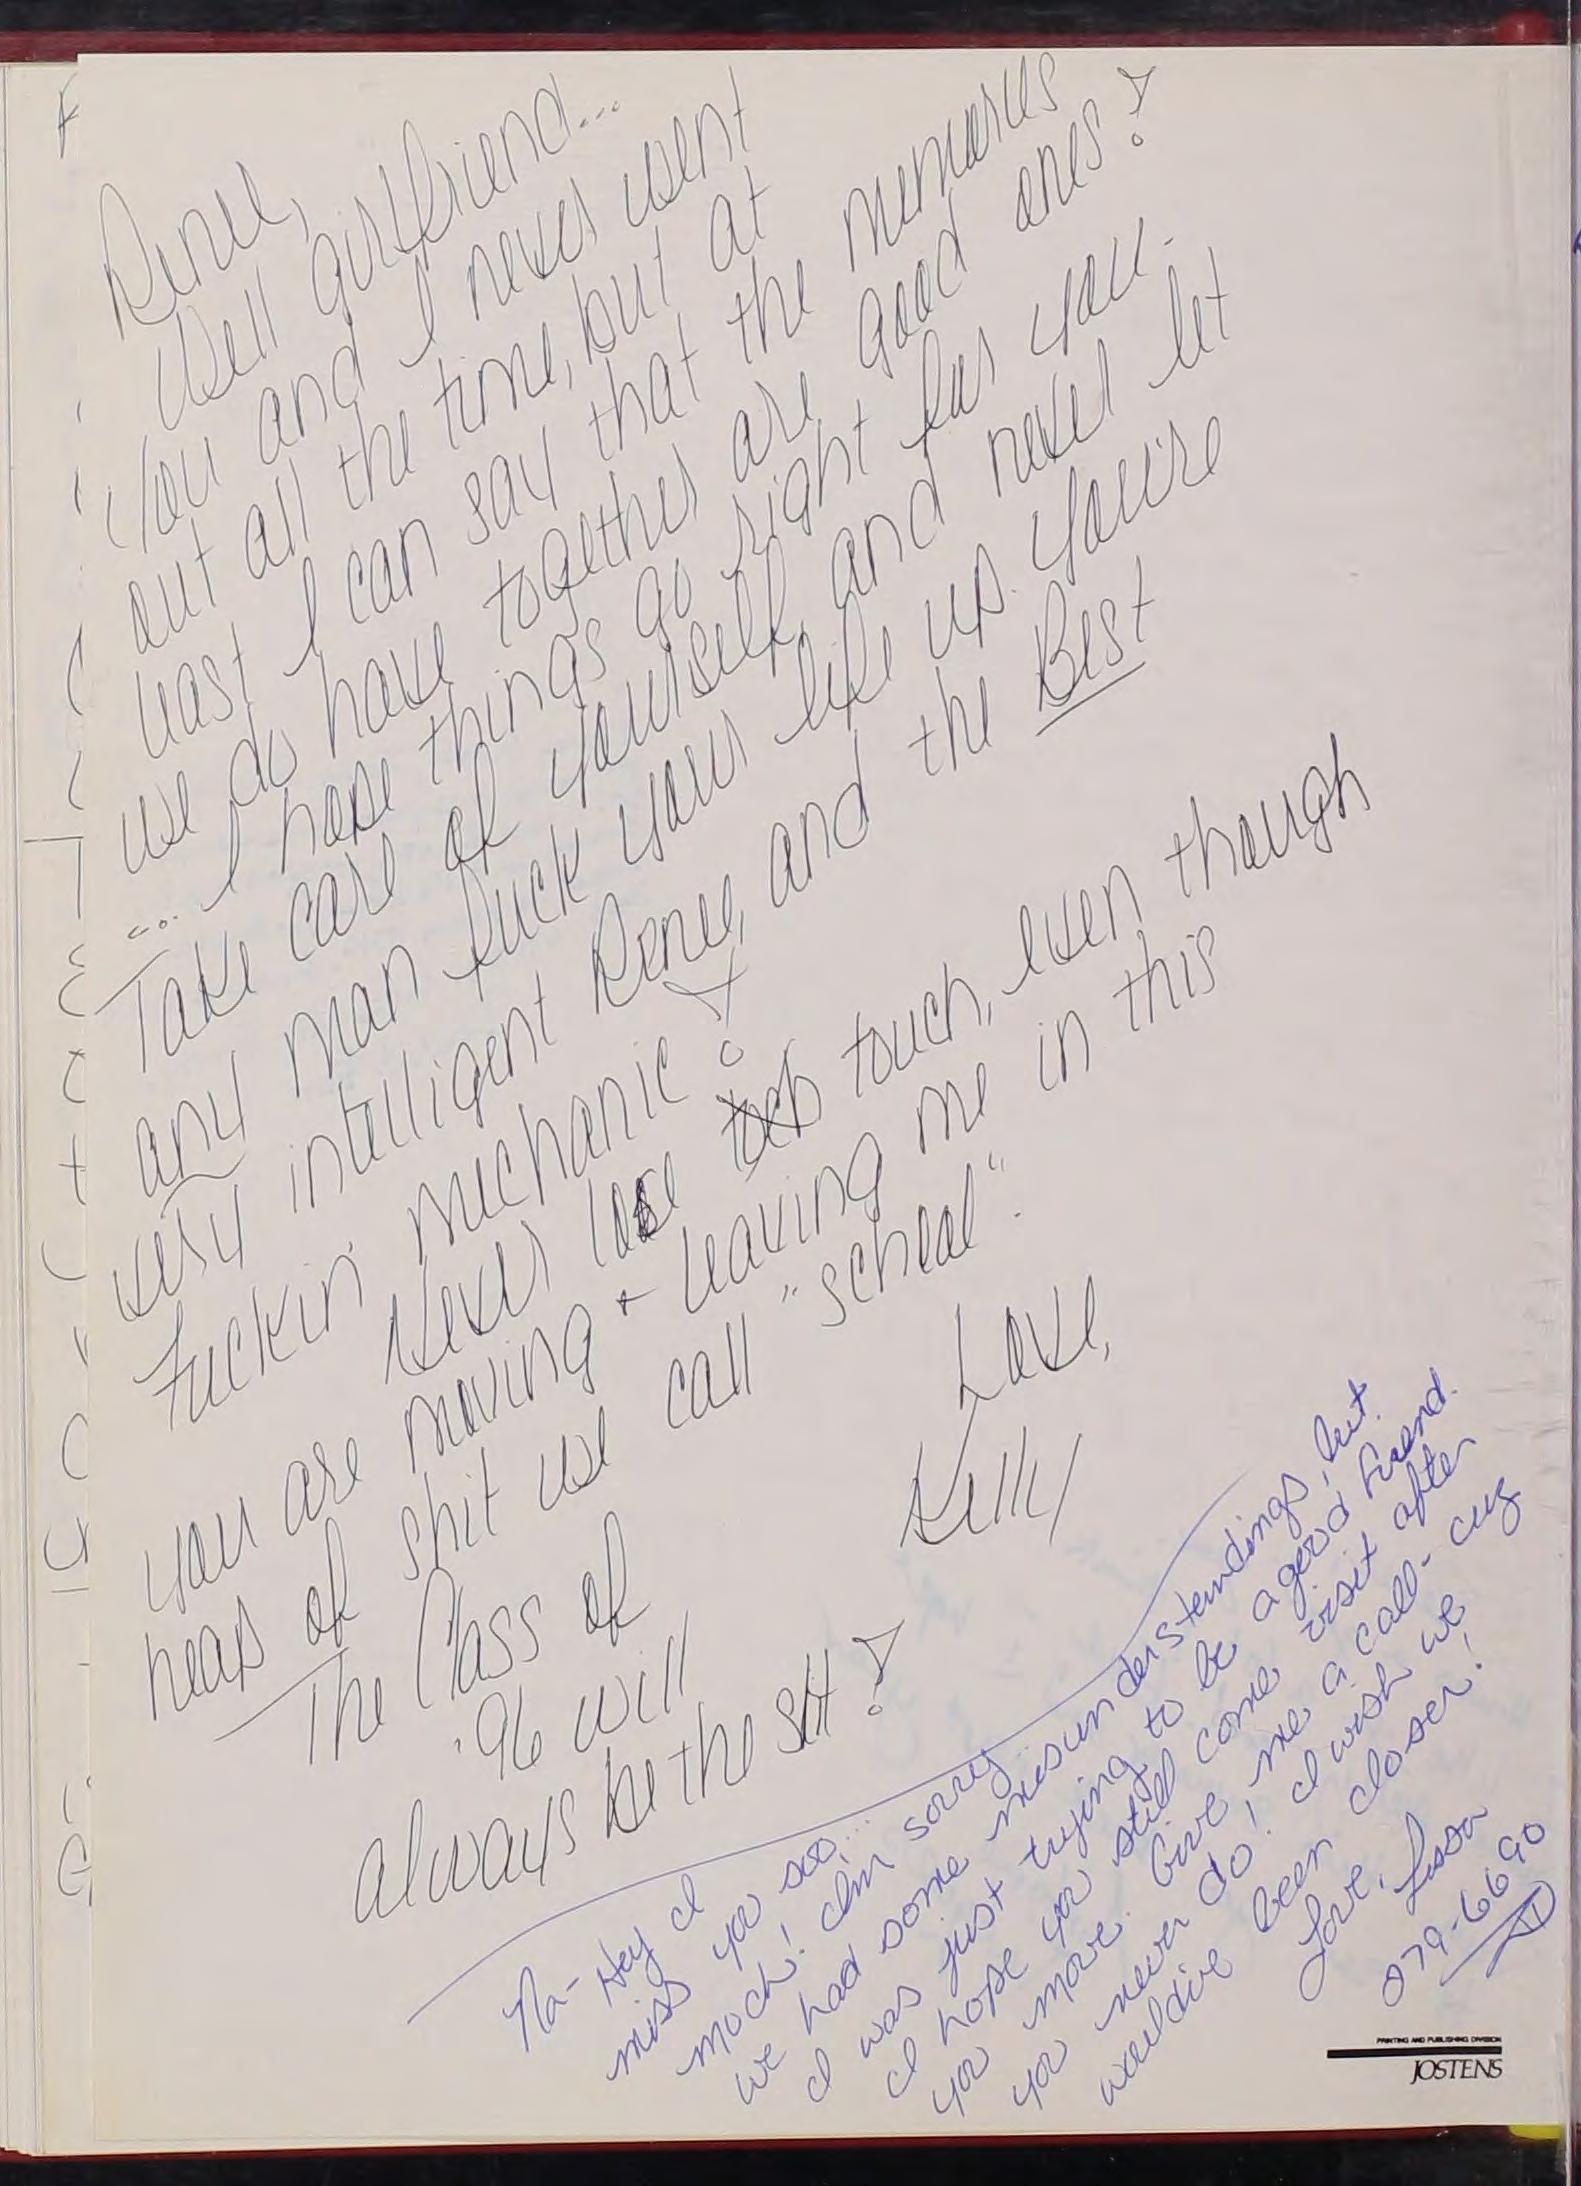 Renee,
Well girlfriend...
You and I never went
out all the time, but at
least I can say that the memories
we do have together are good ones!
... I hope things go right for you.
Take care of yourself, and never let
any man fuck your life up. You're
very intelligent Renee, and the Best
Fuckin mechanic!
Never lose touch, even though
you are moving + leaving me in this
heap of shit we call "school".
Love,
Kelly
The Class of
'96 will
always be the shit!
Na- Hey I
miss you soo...
much! I'm sorry
we had some misunderstandings, but
I was just trying to be a good friend.
I hope you still come visit after
you move. Give me a call- cuz
you never do! I wish we
would've been closer!
Love, Lissa
879-6690
PRINTING AND PUBLISHING DIVISION
JOSTENS